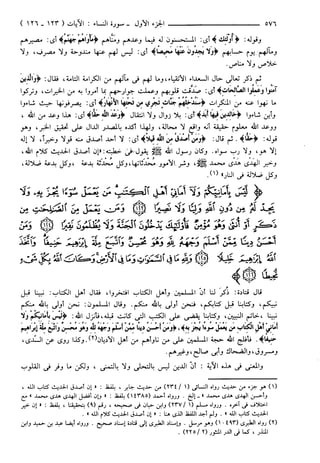 ٥٧٦ الجزء الأول - سورة النساء : الآيات (١٢٣ - ١٢٦)
وقوله: ﴿أُوْلَٰٓئِكَ﴾ أي: المستحسنون له فيما وعدهم ومنَّاهم ﴿مَأۡوَىٰهُمۡ جَهَنَّمُ﴾ أي: مصيرهم
ومآلهم يوم حسابهم ﴿وَلَا يَجِدُونَ عَنۡهَا مَحِيصٗا﴾ أي: ليس لهم عنها مندوحة ولا مصرف، ولا
خلاص ولا مناص.
ثم ذكر تعالى حال السعداء الأتقياء، وما لهم في مآلهم من الكرامة التامة، فقال: ﴿وَٱلَّذِينَ
ءَامَنُواْ وَعَمِلُواْ ٱلصَّٰلِحَٰتِ﴾ أي: صدقت قلوبهم وعملت جوارحهم بما أمروا به من الخيرات، وتركوا
ما نهوا عنه من المنكرات ﴿سَنُدۡخِلُهُمۡ جَنَّٰتٖ تَجۡرِي مِن تَحۡتِهَا ٱلۡأَنۡهَٰرُ﴾ أي: يصرفونها حيث شاءوا
وأين شاءوا ﴿خَٰلِدِينَ فِيهَآ أَبَدٗا﴾ أي: بلا زوال ولا انتقال ﴿وَعۡدَ ٱللَّهِ حَقّٗا﴾ أي: هذا وعد من الله ،
ووعد الله معلوم حقيقة أنه واقع لا محالة، ولهذا أكده بالمصدر الدال على تحقيق الخبر، وهو
قوله: ﴿حَقّٗا﴾. ثم قال: ﴿وَمَنۡ أَصۡدَقُ مِنَ ٱللَّهِ قِيلٗا﴾ أي: لا أحد أصدق منه قولا وخبرًا، لا إله
إلا هو، ولا رب سواه. وكان رسول الله ﷺ يقول في خطبته: «إن أصدق الحديث كلام الله،
وخير الهدى هدى محمد ﷺ، وشر الأمور محدثاتها، وكل محدثة بدعة ، وكل بدعة ضلالة،
وكل ضلالة في النار» (١).
﴿لَّيۡسَ بِأَمَانِيِّكُمۡ وَلَآ أَمَانِيِّ أَهۡلِ ٱلۡكِتَٰبِۗ مَن يَعۡمَلۡ سُوٓءٗا يُجۡزَ بِهِۦ وَلَا
يَجِدۡ لَهُۥ مِن دُونِ ٱللَّهِ وَلِيّٗا وَلَا نَصِيرٗا ١٢٣ وَمَن يَعۡمَلۡ مِنَ ٱلصَّٰلِحَٰتِ مِن
ذَكَرٍ أَوۡ أُنثَىٰ وَهُوَ مُؤۡمِنٞ فَأُوْلَٰٓئِكَ يَدۡخُلُونَ ٱلۡجَنَّةَ وَلَا يُظۡلَمُونَ نَقِيرٗا
١٢٤ وَمَنۡ أَحۡسَنُ دِينٗا مِّمَّنۡ أَسۡلَمَ وَجۡهَهُۥ لِلَّهِ وَهُوَ مُحۡسِنٞ وَٱتَّبَعَ مِلَّةَ إِبۡرَٰهِيمَ حَنِيفٗاۗ وَٱتَّخَذَ
ٱللَّهُ إِبۡرَٰهِيمَ خَلِيلٗا ١٢٥ وَلِلَّهِ مَا فِي ٱلسَّمَٰوَٰتِ وَمَا فِي ٱلۡأَرۡضِۚ وَكَانَ ٱللَّهُ بِكُلِّ شَيۡءٖ
مُّحِيطٗا ١٢٦﴾
قال قتادة: ذُكر لنا أنّ المسلمين وأهل الكتاب افتخروا، فقال أهل الكتاب: نبينا قبل
نبيكم، وكتابنا قبل كتابكم، فنحن أولى بالله منكم. وقال المسلمون: نحن أولى بالله منكم
نبينا خاتم النبيين، وكتابنا يقضي على الكتب التي كانت قبله، فأنزل الله: ﴿لَّيۡسَ بِأَمَانِيِّكُمۡ وَلَآ
أَمَانِيِّ أَهۡلِ ٱلۡكِتَٰبِۗ مَن يَعۡمَلۡ سُوٓءٗا يُجۡزَ بِهِۦ﴾، ﴿وَمَنۡ أَحۡسَنُ دِينٗا مِّمَّنۡ أَسۡلَمَ وَجۡهَهُۥ لِلَّهِ وَهُوَ مُحۡسِنٞ وَٱتَّبَعَ مِلَّةَ إِبۡرَٰهِيمَ
حَنِيفٗا﴾. فأفلج الله حجة المسلمين على من ناوأهم من أهل الأديان (٢). وكذا روي عن السّدي،
ومسروق، والضحاك وأبي صالح، وغيرهم.
والمعنى في هذه الآية : أنّ الدين ليس بالتحلي ولا بالتمني ، ولكن ما وقر في القلوب
(١) هو جزء من حديث رواه النسائي (١ / ٢٣٤) من حديث جابر ، بلفظ : « إن أصدق الحديث كتاب الله ،
وأحسن الهدى هدى محمد » إلخ . ورواه أحمد (١٤٣٨٥) بلفظ : « وإن أفضل الهدى هدى محمد » مع
اختلاف في آخره . ورواه مسلم (١ / ٢٣٧) وابن حبان في صحيحه ، رقم (٩) بتحقيقنا ، بلفظ : « إن خير
الحديث كتاب الله » . ولم أجد اللفظ الذي هنا : « إن أصدق الحديث كلام الله » .
(٢) رواه الطبري (١٠٤٩٣) وهو مرسل . وإسناد الطبري إلى قتادة إسناد صحيح . ورواه أيضا عبد بن حميد وابن
المنذر ، كما في الدر المنثور (٢ / ٢٢٥) .